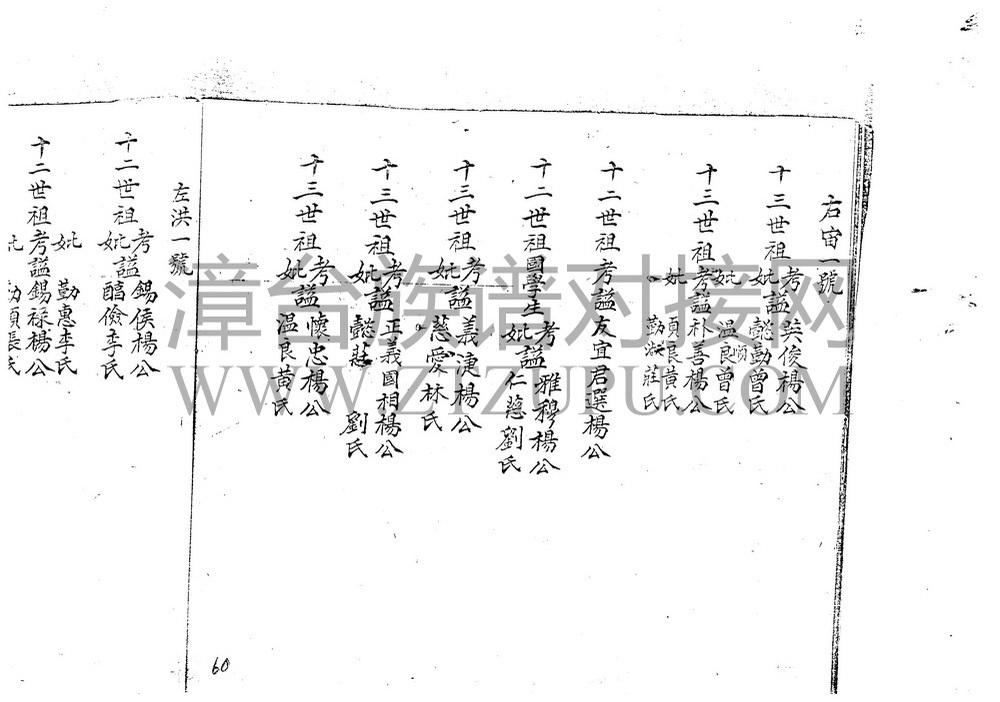 右宙一號
十三世祖考諡英俊楊公
妣諡懿勤曾氏
妣 溫良曾氏
十三世祖考諡朴善楊公
妣 貞良黃氏
勤淑莊氏
十二世祖考諡友宜君選楊公
十二世祖國學生考諡雅穆楊公
妣諡仁慈劉氏
十三世祖考諡義 楊公
妣 慈愛林氏
十三世祖考諡正義國相楊公
妣 懿莊 劉氏
十三世祖考諡懷忠楊公
妣 溫良黃氏
左洪一號
十二世祖考諡錫侯楊公
妣諡 儉李氏
妣 勤惠李氏
十二世祖考諡錫祿楊公
妣 勤順張氏
60
漳台族谱对接网
WWW.ZTZUPU.COM